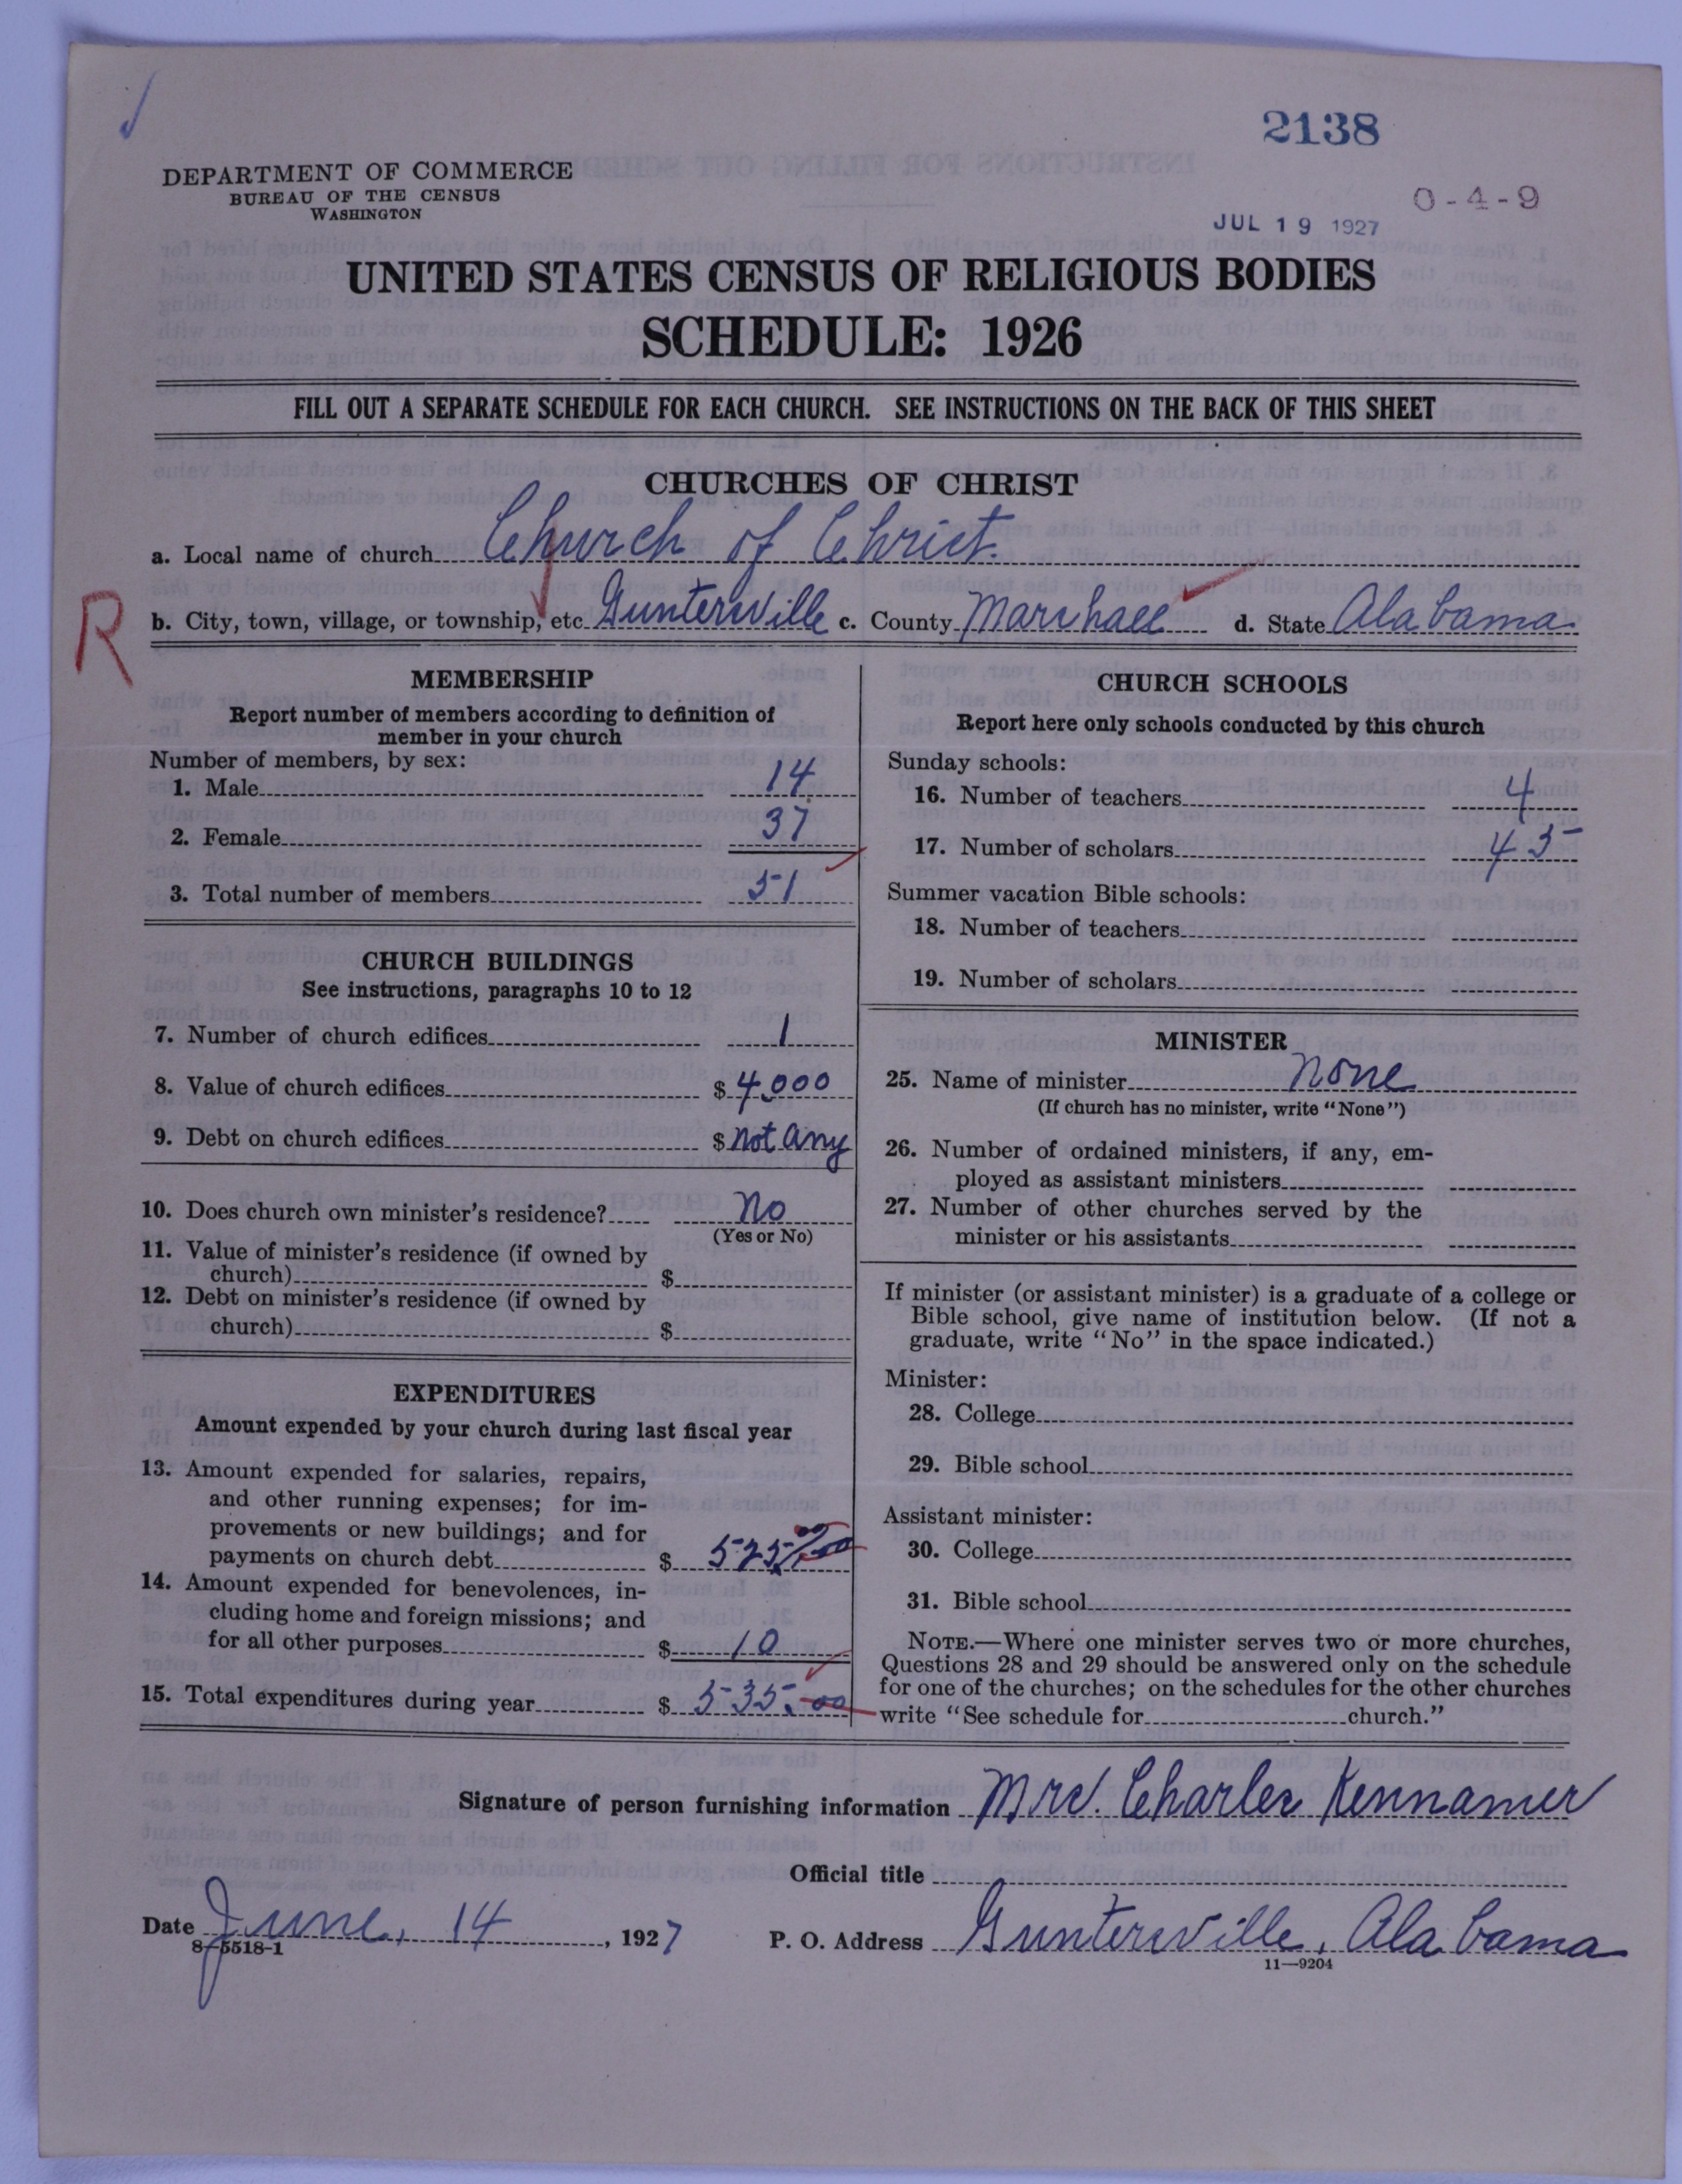 2138
DEPARTMENT OF COMMERCE
BUREAU OF THE CENSUS
WASHINGTON
0-4-9
JUL 19 1927
UNITED STATES CENSUS OF RELIGIOUS BODIES
SCHEDULE: 1926
FILL OUT A SEPARATE SCHEDULE FOR EACH CHURCH. SEE INSTRUCTIONS ON THE BACK OF THIS SHEET
CHURCHES OF CHRIST
a. Local name of church Church of Christ.
R
b. City, town, village, or township, etc. Guntersville c. County Marshall d. State Alabama
MEMBERSHIP
Report number of members according to definition of
member in your church
Number of members, by sex:
1. Male 14
2. Female 37
3. Total number of members 51
CHURCH BUILDINGS
See instructions, paragraphs 10 to 12
7. Number of church edifices 1
8. Value of church edifices $ 4,000
9. Debt on church edifices $ not any
10. Does church own minister's residence? No
(Yes or No)
11. Value of minister's residence (if owned by
church) $
12. Debt on minister's residence (if owned by
church) $
EXPENDITURES
Amount expended by your church during last fiscal year
13. Amount expended for salaries, repairs,
and other running expenses; for im-
provements or new buildings; and for
payments on church debt $ 525
14. Amount expended for benevolences, in-
cluding home and foreign missions; and
for all other purposes $ 10
15. Total expenditures during year $ 535.00
CHURCH SCHOOLS
Report here only schools conducted by this church
Sunday schools:
16. Number of teachers 4
17. Number of scholars 45
Summer vacation Bible schools:
18. Number of teachers
19. Number of scholars
MINISTER
25. Name of minister None
(If church has no minister, write "None")
26. Number of ordained ministers, if any, em-
ployed as assistant ministers
27. Number of other churches served by the
minister or his assistants
If minister (or assistant minister) is a graduate of a college or
Bible school, give name of institution below. (If not a
graduate, write "No" in the space indicated.)
Minister:
28. College
29. Bible school
Assistant minister:
30. College
31. Bible school
NOTE.—Where one minister serves two or more churches,
Questions 28 and 29 should be answered only on the schedule
for one of the churches; on the schedules for the other churches
write "See schedule for church."
Signature of person furnishing information Mrs. Charles Kennamer
Official title
Date June, 14, 1927 P. O. Address Guntersville, Alabama
8-5518-1
11—9204